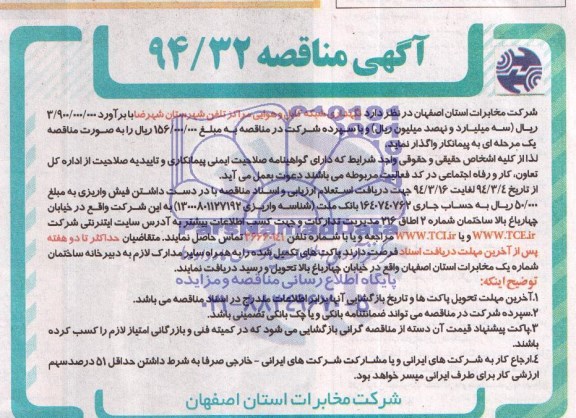 آگهی مناقصه ۹۴/۳۲
شرکت مخابرات استان اصفهان در نظر دارد نگهداری شبکه کابل و هوایی مراکز تلفن شهرستان شهرضا با برآورد ۳/۹۰۰/۰۰۰/۰۰۰
ریال (سه میلیارد و نهصد میلیون ریال) و با سپرده شرکت در مناقصه به مبلغ ۱۵۶/۰۰۰/۰۰۰ ریال را به صورت مناقصه
یک مرحله ای به پیمانکار واگذار نماید.
لذا از کلیه اشخاص حقیقی و حقوقی واجد شرایط که دارای گواهینامه صلاحیت ایمنی پیمانکاری و تاییدیه صلاحیت از اداره کل
تعاون، کار و رفاه اجتماعی در کد فعالیت مربوطه می باشند دعوت بعمل می آید.
از تاریخ ۹۴/۳/۴ لغایت ۹۴/۳/۱۶ جهت دریافت استعلام ارزیابی و اسناد مناقصه با در دست داشتن فیش واریزی به مبلغ
۵۰/۰۰۰ ریال به حساب جاری ۱۶۴۰۷۴۰۷۶۲ بانک ملت (شناسه واریزی ۱۳۰۰۰۸۰۱۱۲۷۱۹۲) به این شرکت واقع در خیابان
چهارباغ بالا ساختمان شماره ۲ اطاق ۳۱۶ مدیریت تدارکات و جهت کسب اطلاعات بیشتر به آدرس سایت اینترنتی شرکت
WWW.TCE.ir و یا WWW.TCI.ir مراجعه و یا با شماره تلفن تماس حاصل نمایند. متقاضیان حداکثر تا دو هفته
پس از آخرین مهلت دریافت اسناد فرصت دارند پاکت های تکمیل شده را به همراه سایر مدارک لازم به دبیرخانه ساختمان
شماره یک مخابرات استان اصفهان واقع در خیابان چهارباغ بالا تحویل و رسید دریافت نمایند.
توضیح اینکه:
۱.آخرین مهلت تحویل پاکت ها و تاریخ بازگشایی آنها برابر اطلاعات مندرج در اسناد مناقصه می باشد.
۲.سپرده شرکت در مناقصه می تواند ضمانتنامه بانکی و یا چک بانکی تضمینی باشد.
۳.پاکت پیشنهاد قیمت آن دسته از مناقصه گرانی بازگشایی می شود که در کمیته فنی و بازرگانی امتیاز لازم را کسب کرده
باشند.
۴.ارجاع کار به شرکت های ایرانی و یا مشارکت شرکت های ایرانی - خارجی صرفا به شرط داشتن حداقل ۵۱ درصد سهم
ارزشی کار برای طرف ایرانی میسر خواهد بود.
شرکت مخابرات استان اصفهان
ParsNamadData
پایگاه اطلاع رسانی مناقصه و مزایده